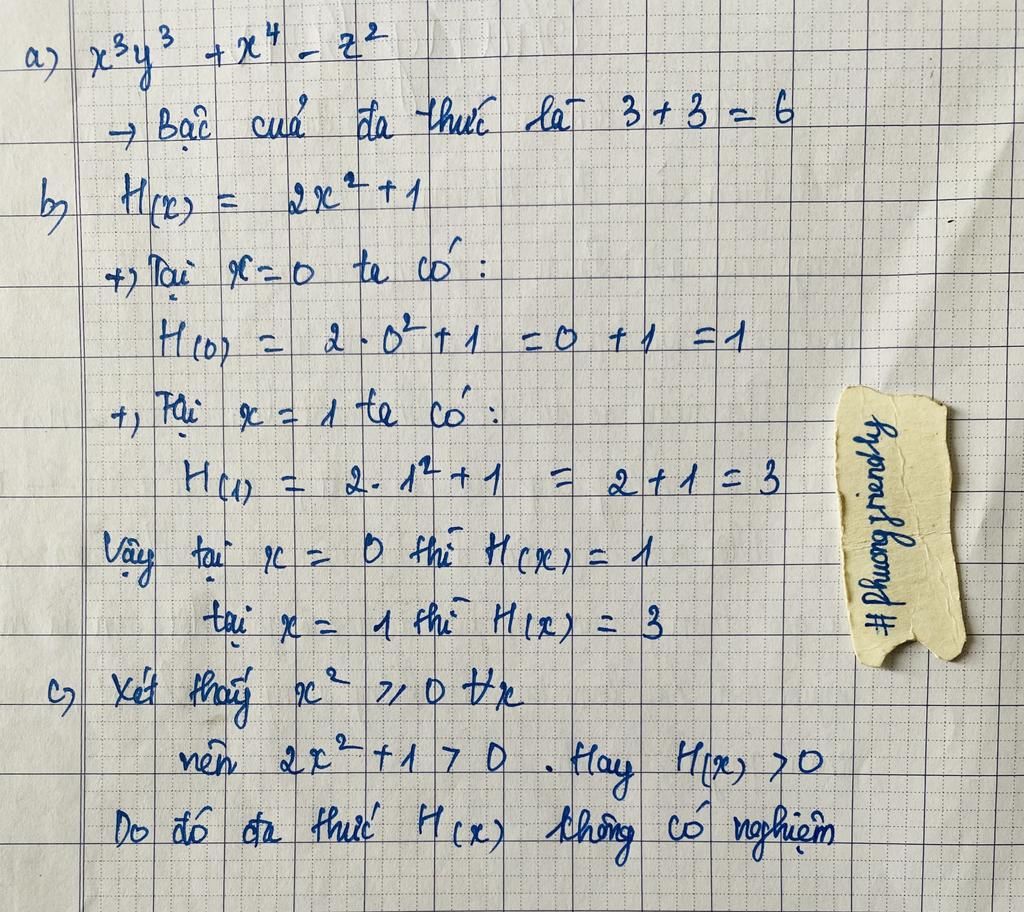 a) x³y³ + x⁴ - z²
→ Bậc cuả đa thức là 3 + 3 = 6
b) H(x) = 2x² + 1
+) Tại x = 0 ta có :
H(0) = 2 . 0² + 1 = 0 + 1 = 1
+) Tại x = 1 ta có :
H(1) = 2. 1² + 1 = 2 + 1 = 3
Vậy tại x = 0 thì H(x) = 1
tại x = 1 thì H(x) = 3
c) Xét thấy x² ≥ 0 ∀x
nên 2x² + 1 > 0 . Hay H(x) > 0
Do đó đa thức H(x) không có nghiệm
#phuongfriendly